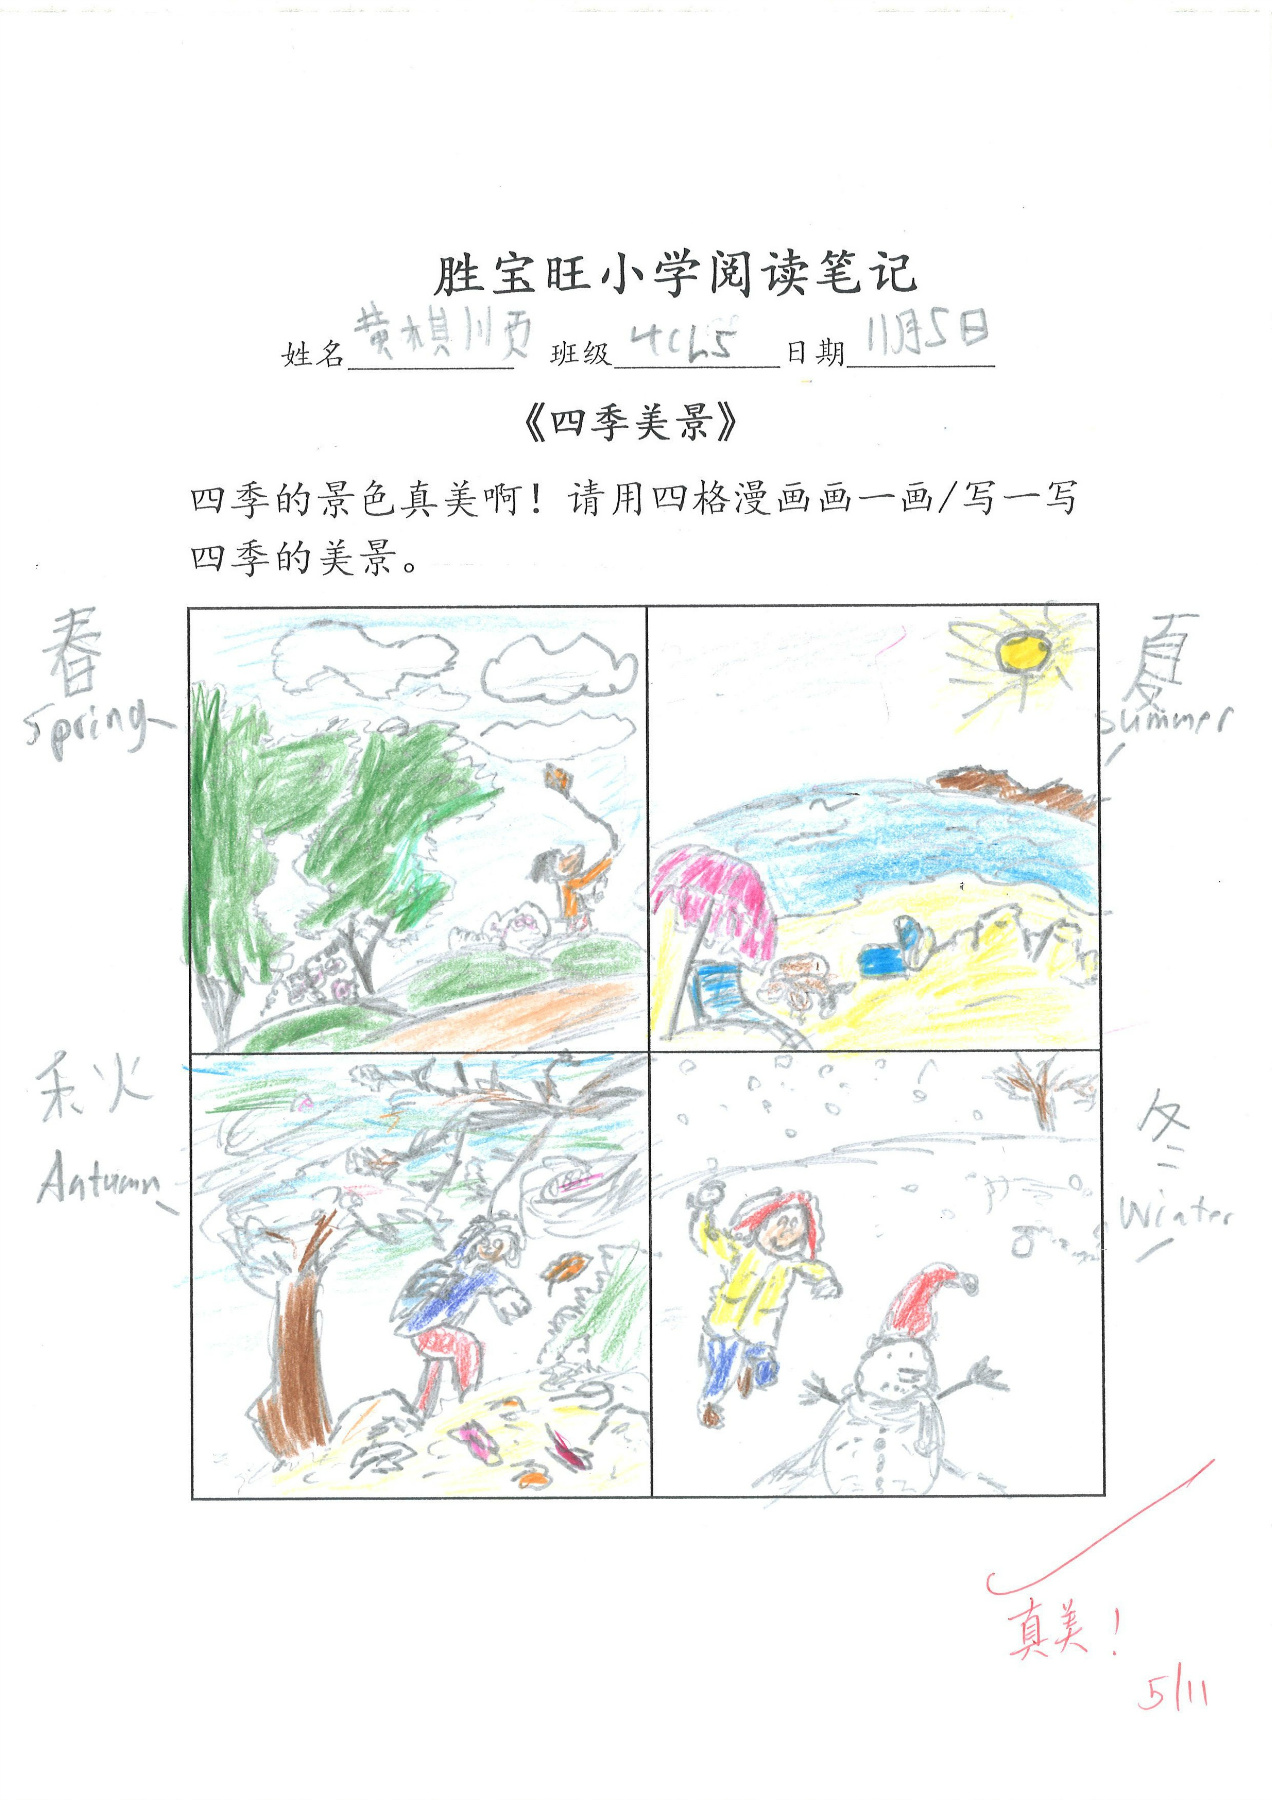 胜宝旺小学阅读笔记
姓名 黄棋顺 班级 4CL5 日期 11月5日
《四季美景》
四季的景色真美啊！请用四格漫画画一画/写一写
四季的美景。
春
Spring
夏
summer
秋
Autumn
冬
Winter
真美！
5/11